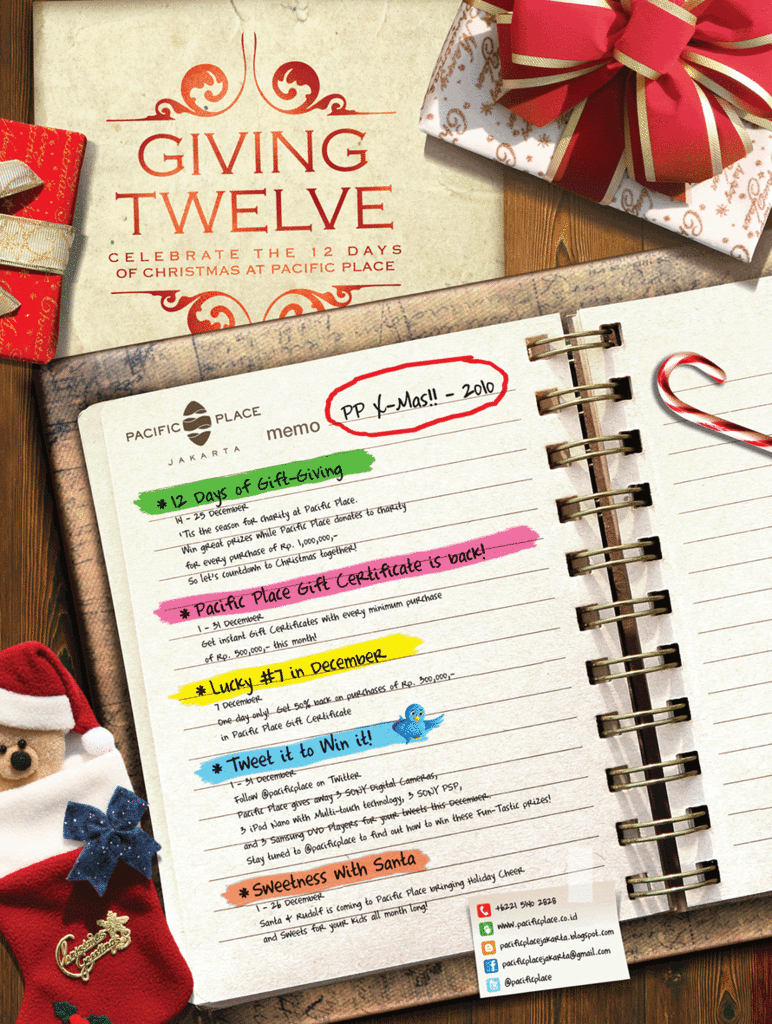 GIVING
TWELVE
CELEBRATE THE 12 DAYS
OF CHRISTMAS AT PACIFIC PLACE
PACIFIC PLACE
JAKARTA
memo
PP X-Mas!! - 2010
* 12 Days of Gift-Giving
14 - 25 December
'Tis the season for charity at Pacific Place.
Win great prizes while Pacific Place donates to charity
for every purchase of Rp. 1,000,000,-
So let's countdown to Christmas together!
* Pacific Place Gift Certificate is back!
1 - 31 December
Get instant Gift Certificates with every minimum purchase
of Rp. 500,000,- this month!
* Lucky #7 in December
7 December
One day only! Get 50% back on purchases of Rp. 300,000,-
in Pacific Place Gift Certificate
* Tweet it to Win it!
1 - 31 December
Follow @pacificplace on Twitter
Pacific Place gives away 3 SONY Digital Cameras,
3 iPod Nano With Multi-touch technology, 3 SONY PSP,
and 3 Samsung DVD Players for your tweets this December.
Stay tuned to @pacificplace to find out how to win these Fun-Tastic prizes!
* Sweetness With Santa
1 - 26 December
Santa + Rudolf is coming to Pacific Place bringing Holiday Cheer
and Sweets for your kids all month long!
+6221 5140 2828
www.pacificplace.co.id
pacificplacejakarta.blogspot.com
pacificplacejakarta@gmail.com
@pacificplace
Christmas
Greetings